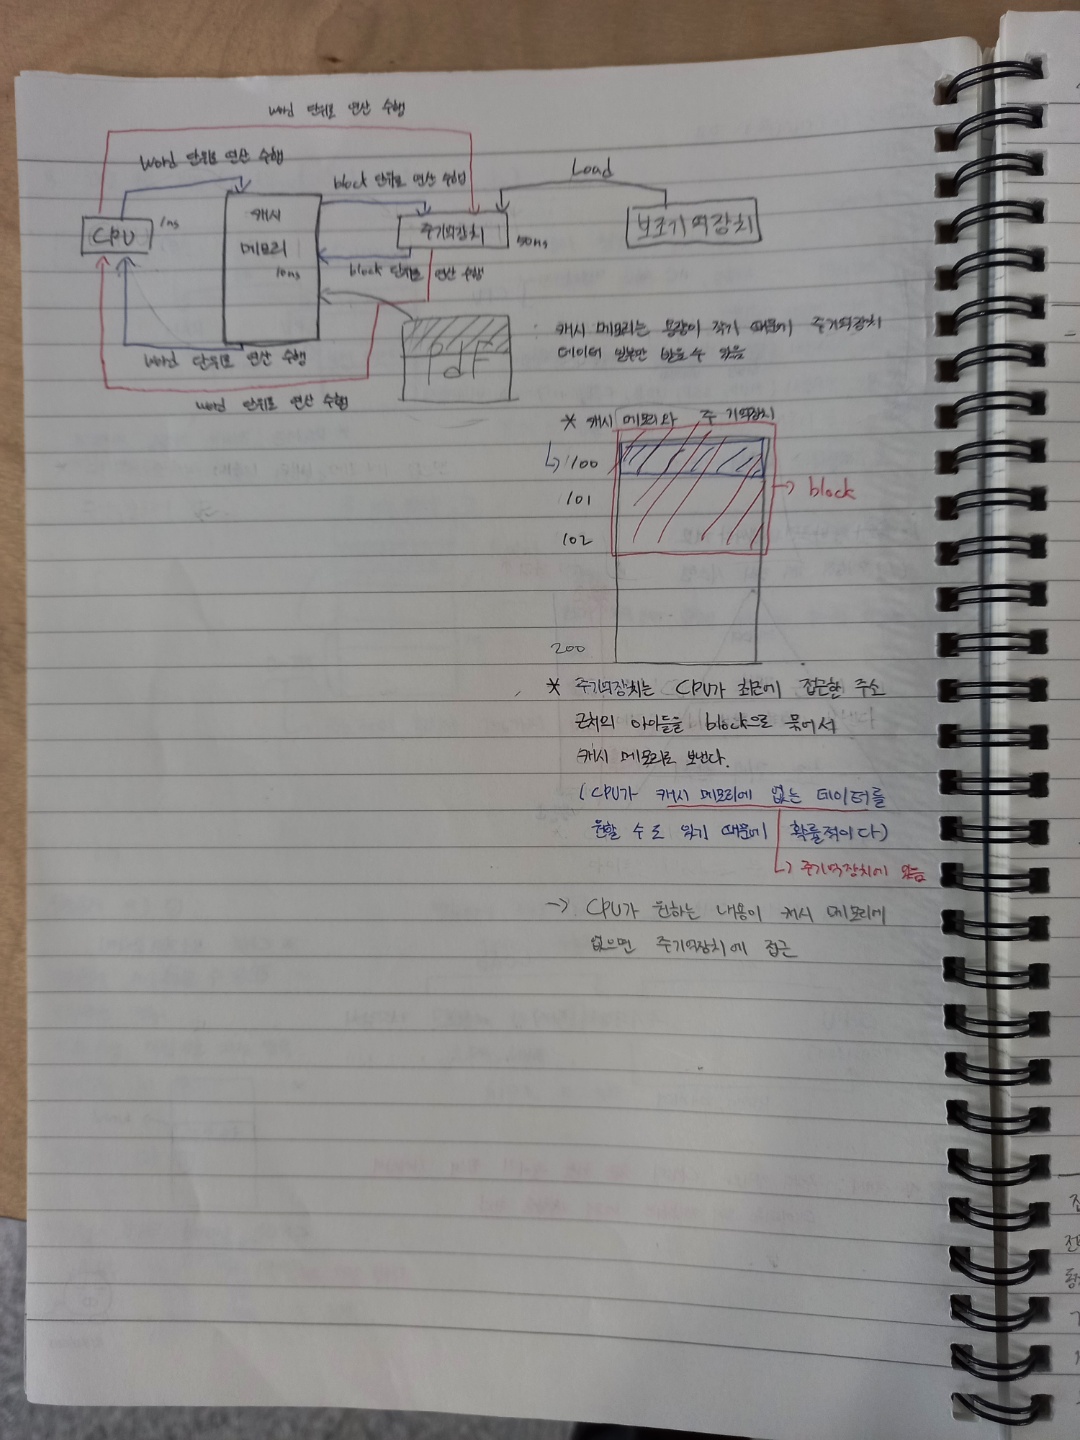 word 단위로 연산 수행
word 단위로 연산 수행
block 단위로 연산 수행
Load
CPU
1ns
캐시
메모리
10ns
주기억장치
50ns
보조기억장치
block 단위로 연산 수행
word 단위로 연산 수행
word 단위로 연산 수행
pdf
: 캐시 메모리는 용량이 작기 때문에 주기억장치
데이터 일부만 받을 수 있음
* 캐시 메모리와 주기억장치
↳ 100
101
102
→ block
200
* 주기억장치는 CPU가 최근에 접근한 주소
근처의 아이들을 block으로 묶어서
캐시 메모리로 보낸다.
(CPU가 캐시 메모리에 없는 데이터를
원할 수도 있기 때문에 확률적이다)
↳ 주기억장치에 있음
→ CPU가 원하는 내용이 캐시 메모리에
없으면 주기억장치에 접근